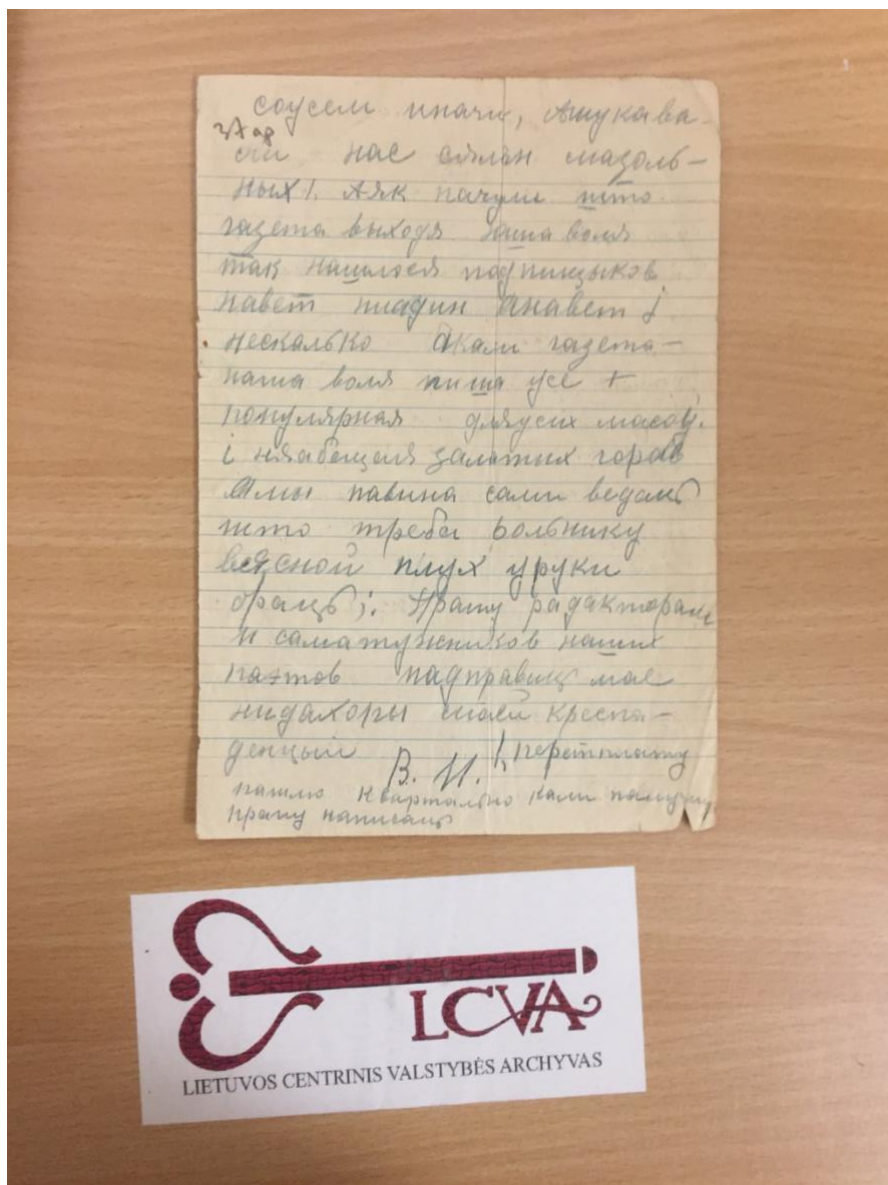 соусем иначи, Ашукава-
37 ар
ли нас сялян мазоль-
ных!. Аяк пачули што
газета выходя наша воля
так нашлося подпищыков
навет ниадин Анавет і
несколько Акали газета-
наша воля пиша усе +
популярная дляусих масоў.
і няабещала залатых гороў
Амы павина сами ведаць
што треба рольнику
веясной плух у руки
браць;. Прашу радактораў
и саматужников наших
паэтов падправиць мае
нидахопы маей креспа-
денцыии В. И. (перетплату
пашлю Квартально кали
прашу написаць
LCVA
LIETUVOS CENTRINIS VALSTYBĖS ARCHYVAS